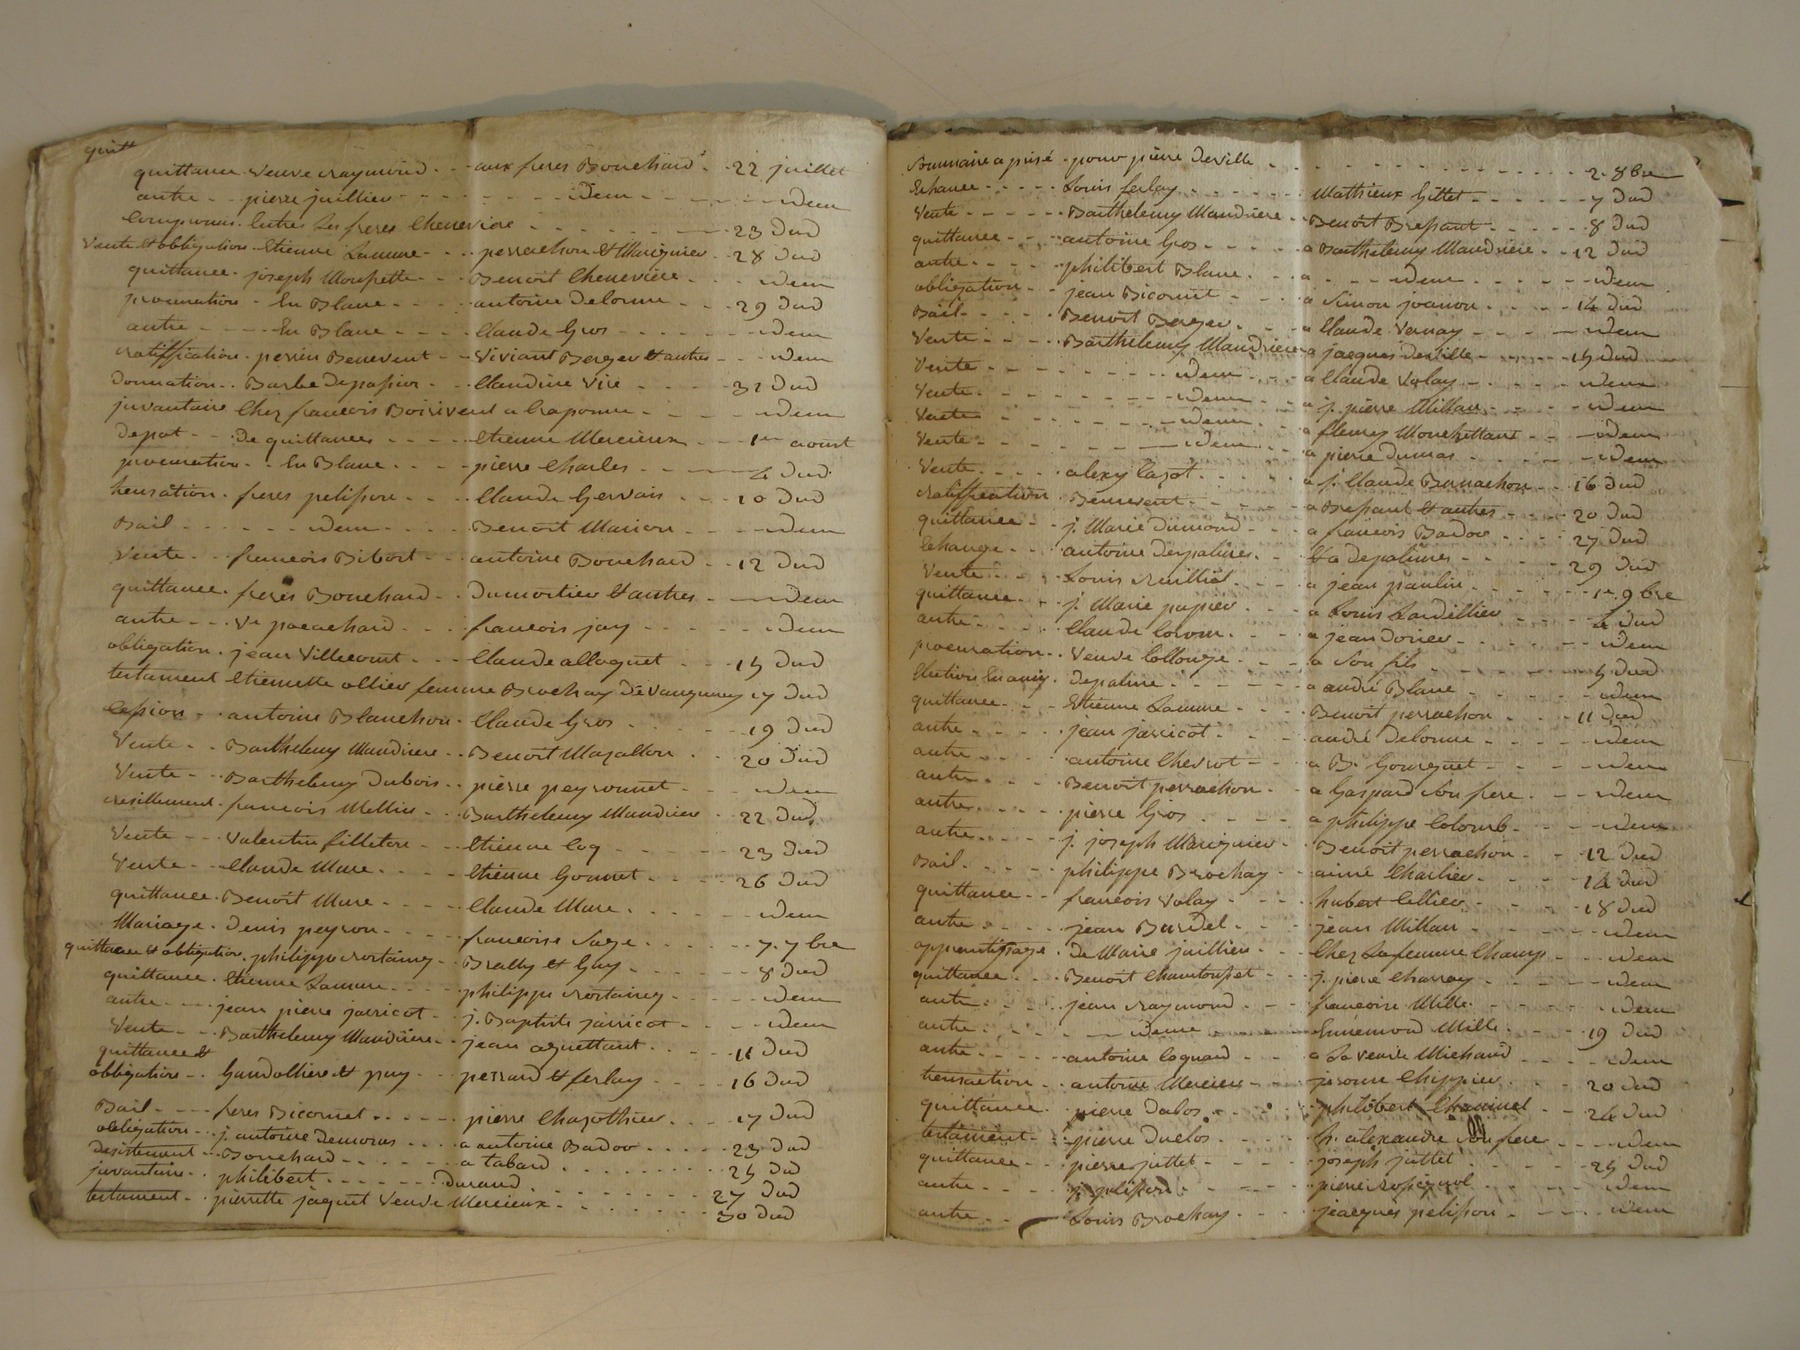 quitt
quittance veuve raymond aux freres Bouchard 22 juillet
autre pierre juillier idem idem
Compromis Entre Les freres Cheneviere 23 dud
Vente et obligation Etienne Lamure perrachon et Marignier 28 dud
quittance joseph Benoit Cheneviere idem
procuration En Blanc antoine delorme 29 dud
autre En Blanc Claude Gros idem
ratiffication perrin Benevent Viviant Berger et autres idem
donnation Barbe depassior Claudine Vire 31 dud
juvantaire Chez francois Boirivent a Craponne idem
depot de quittances Etienne Mercieux 1er aoust
procuration En Blanc pierre Charles 4 dud
freres pelisson Claude Gervais 10 dud
Bail idem Benoit Marion idem
Vente francois Bibost antoine Bouchard 12 dud
quittance freres Bouchard Dumortier et autres idem
autre Ve francois jay idem
obligation jean Villecourt Claude alloquet 15 dud
testament Etiennette ollier femme Brochay de Vaugneray 17 dud
Cession antoine Blanchon Claude Gros 19 dud
Vente Barthelemy Maudriere Benoit Mazallon 20 dud
Vente Barthelemy Dubois pierre peyronnet idem
resillement francois Mellier Barthelemy Maudriere 22 dud
Vente Valentin filleton Etienne Coq 23 dud
Vente Claude Mure Etienne Gonnet 26 dud
quittance Benoit Mure Claude Mure idem
Mariage denis peyron francoise Sage 7 7bre
quittance et obligation philippe rostaing Brally et Guy 8 dud
quittance Etienne Lamure philippe rostaing idem
autre jean pierre jarricot j. Baptiste jarricot idem
Vente Barthelemy Maudriere jean aguettant 11 dud
quittance et
obligation Gaudolliere et puy perrard et ferlay 16 dud
Bail freres Bicornet pierre Chazothier 17 dud
obligation j. antoine Demoras a antoine Badoo 23 dud
desistement Bouchard a tabard 25 dud
juvantaire philibert durand 27 dud
testament pierrette jaquet veuve Mercieux 30 dud
Sommaire aprisé pour pierre deville 2 8bre
Echance Louis ferlay Matthieux Gillet 7 dud
Vente Barthelemy Maudriere Benoit Bressant 8 dud
quittance antoine Gros a Barthelemy Maudriere 12 dud
autre philibert Blanc a idem idem
obligation jean Bicornet a Simon joannon 14 dud
Bail Benoit Berger a Claude Vernay idem
Vente Barthelemy Maudriere a jacques deville 15 dud
Vente idem a Claude Volay idem
Vente idem a j. pierre Millan idem
Vente idem a fleury Mouchettant idem
Vente idem a pierre dumas idem
Vente alexy Cazot a j. Claude Bonnachon 16 dud
ratiffication Benevent a Bressant et autres 20 dud
quittance j. Marie dumond a francois Badoo 27 dud
Echange antoine depalines et a depalines 29 dud
Vente Louis a jean paulin 1er 9bre
quittance j. Marie papier a Louis Lardillier 4 dud
autre Claude Colom a jean Dorier idem
procuration Veuve Collonge a Son fils 5 dud
Election En amy depaline a andré Blanc idem
quittance Etienne Lamure Benoit perrachon 11 dud
autre jean jarricot andré delorme idem
autre antoine Chevrot a B. Gourguet idem
autre Benoit perrachon a Gaspard Son frere idem
autre pierre Gros a philippe Colomb idem
autre j. joseph Marignier Benoit perrachon 12 dud
Bail philippe Brochay aimé Charlier 14 dud
quittance francois Volay hubert Cellier 18 dud
autre jean Burdel jean Millan idem
apprentissage de Marie juillien Chez La femme Champ idem
quittance Benoit Chantousset j. pierre Charray idem
autre jean raymond francoise Mille idem
autre idem Ennemond Mille 19 dud
autre antoine Coquard a La veuve Michaud idem
transaction antoine Mercier jerome Chippier 20 dud
quittance pierre duclos philibert Chaninel 24 dud
testament pierre duclos h. alexandre Son frere idem
quittance pierre juttet joseph juttet 25 dud
autre pelisson pierre rossignol idem
autre Louis Brochay jeacques pelisson idem